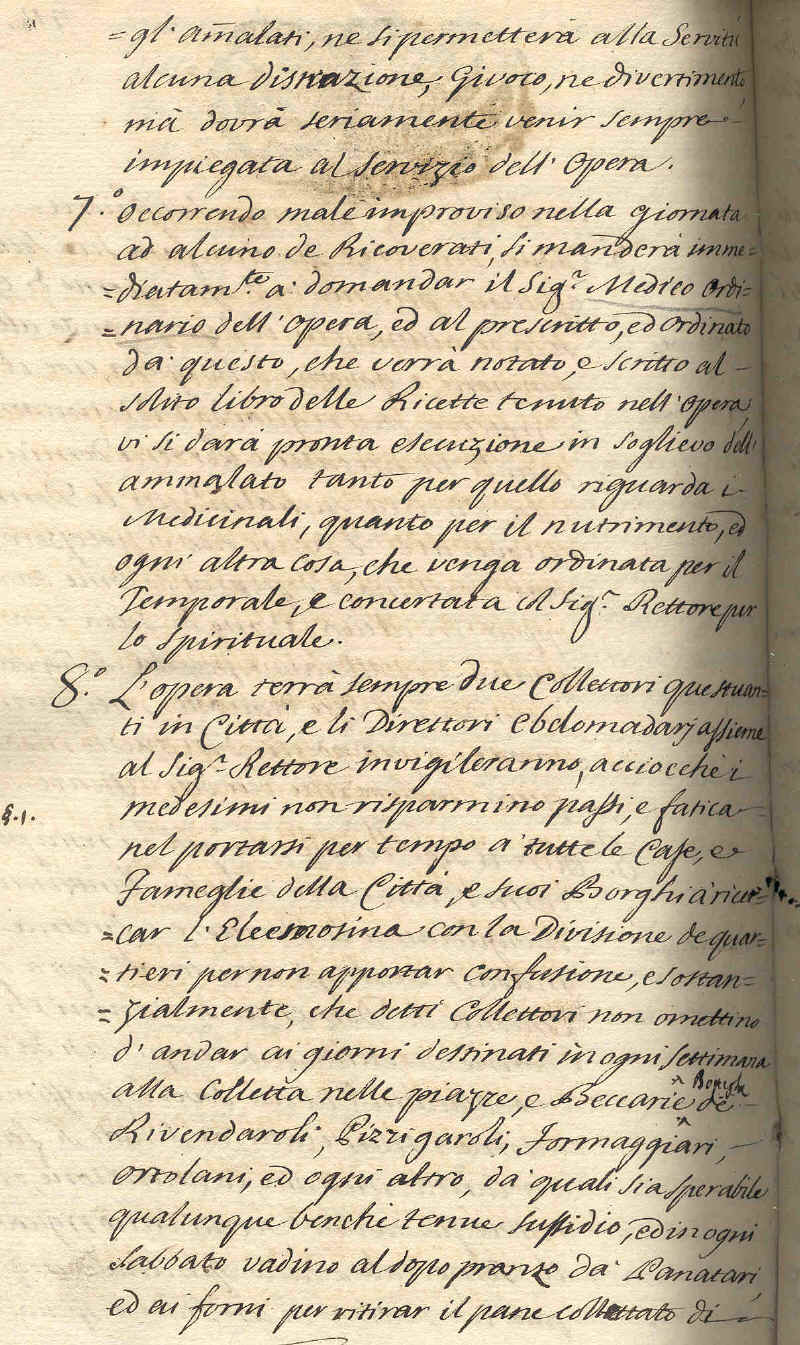 =gl' am̃alati, ne si permetterà alla Servitù
alcuna distrazione, Givoco, ne divertimento,
mà dovrà seriamente venir sempre
impiegata al Servizio dell' Opera.
7.° Occorrendo male improviso nella giornata
ad alcuno de Ricoverati, si manderà imme=
=diatam.te a domandar il Sig.r Medico Ordi=
=nario dell' Opera, ed al prescritto, ed Ordinato
da questo, che verrà notato, e scritto al
solito libro delle Ricette tenuto nell' Opera,
vi si darà pronta esecuzione in soglievo dell'
ammalato tanto per quello riguarda i
Medicinali, quanto per il nutrimento, ed
ogni altra cosa, che venga ordinata per il
Temporale, e concertata col Sig.r Rettore per
lo Spirituale.
8.° L'opera terrà sempre due Collettori questuan=
ti in Città, e li Direttori Ebdomadarj assieme
al Sig.r Rettore invigileranno, acciocchè i
§.1.
medesimi non risparmino passi, e fatica
nel portarsi per tempo a tutte le Case, e
Fameglie della Città, e suoi Borghi à ricer=
=car l'Eleemosina con la Divisione de quar=
=tieri per non apportar confusione, e sostan=
=zialmente, che detti Collettori non omettino
d' andar ai giorni destinati in ogni settimana
alla Colletta nelle piazze, e Beccarie de
Rivendaroli, Pizzigaroli, Formaggiari,
Ortolani, ed ogni altro, da quali sia sperabile
qualunque benche tenue sussidio, ed in ogni
Sabbato vadino al dopo pranzo da Panatari,
ed ai forni per ritirar il pane collettato di